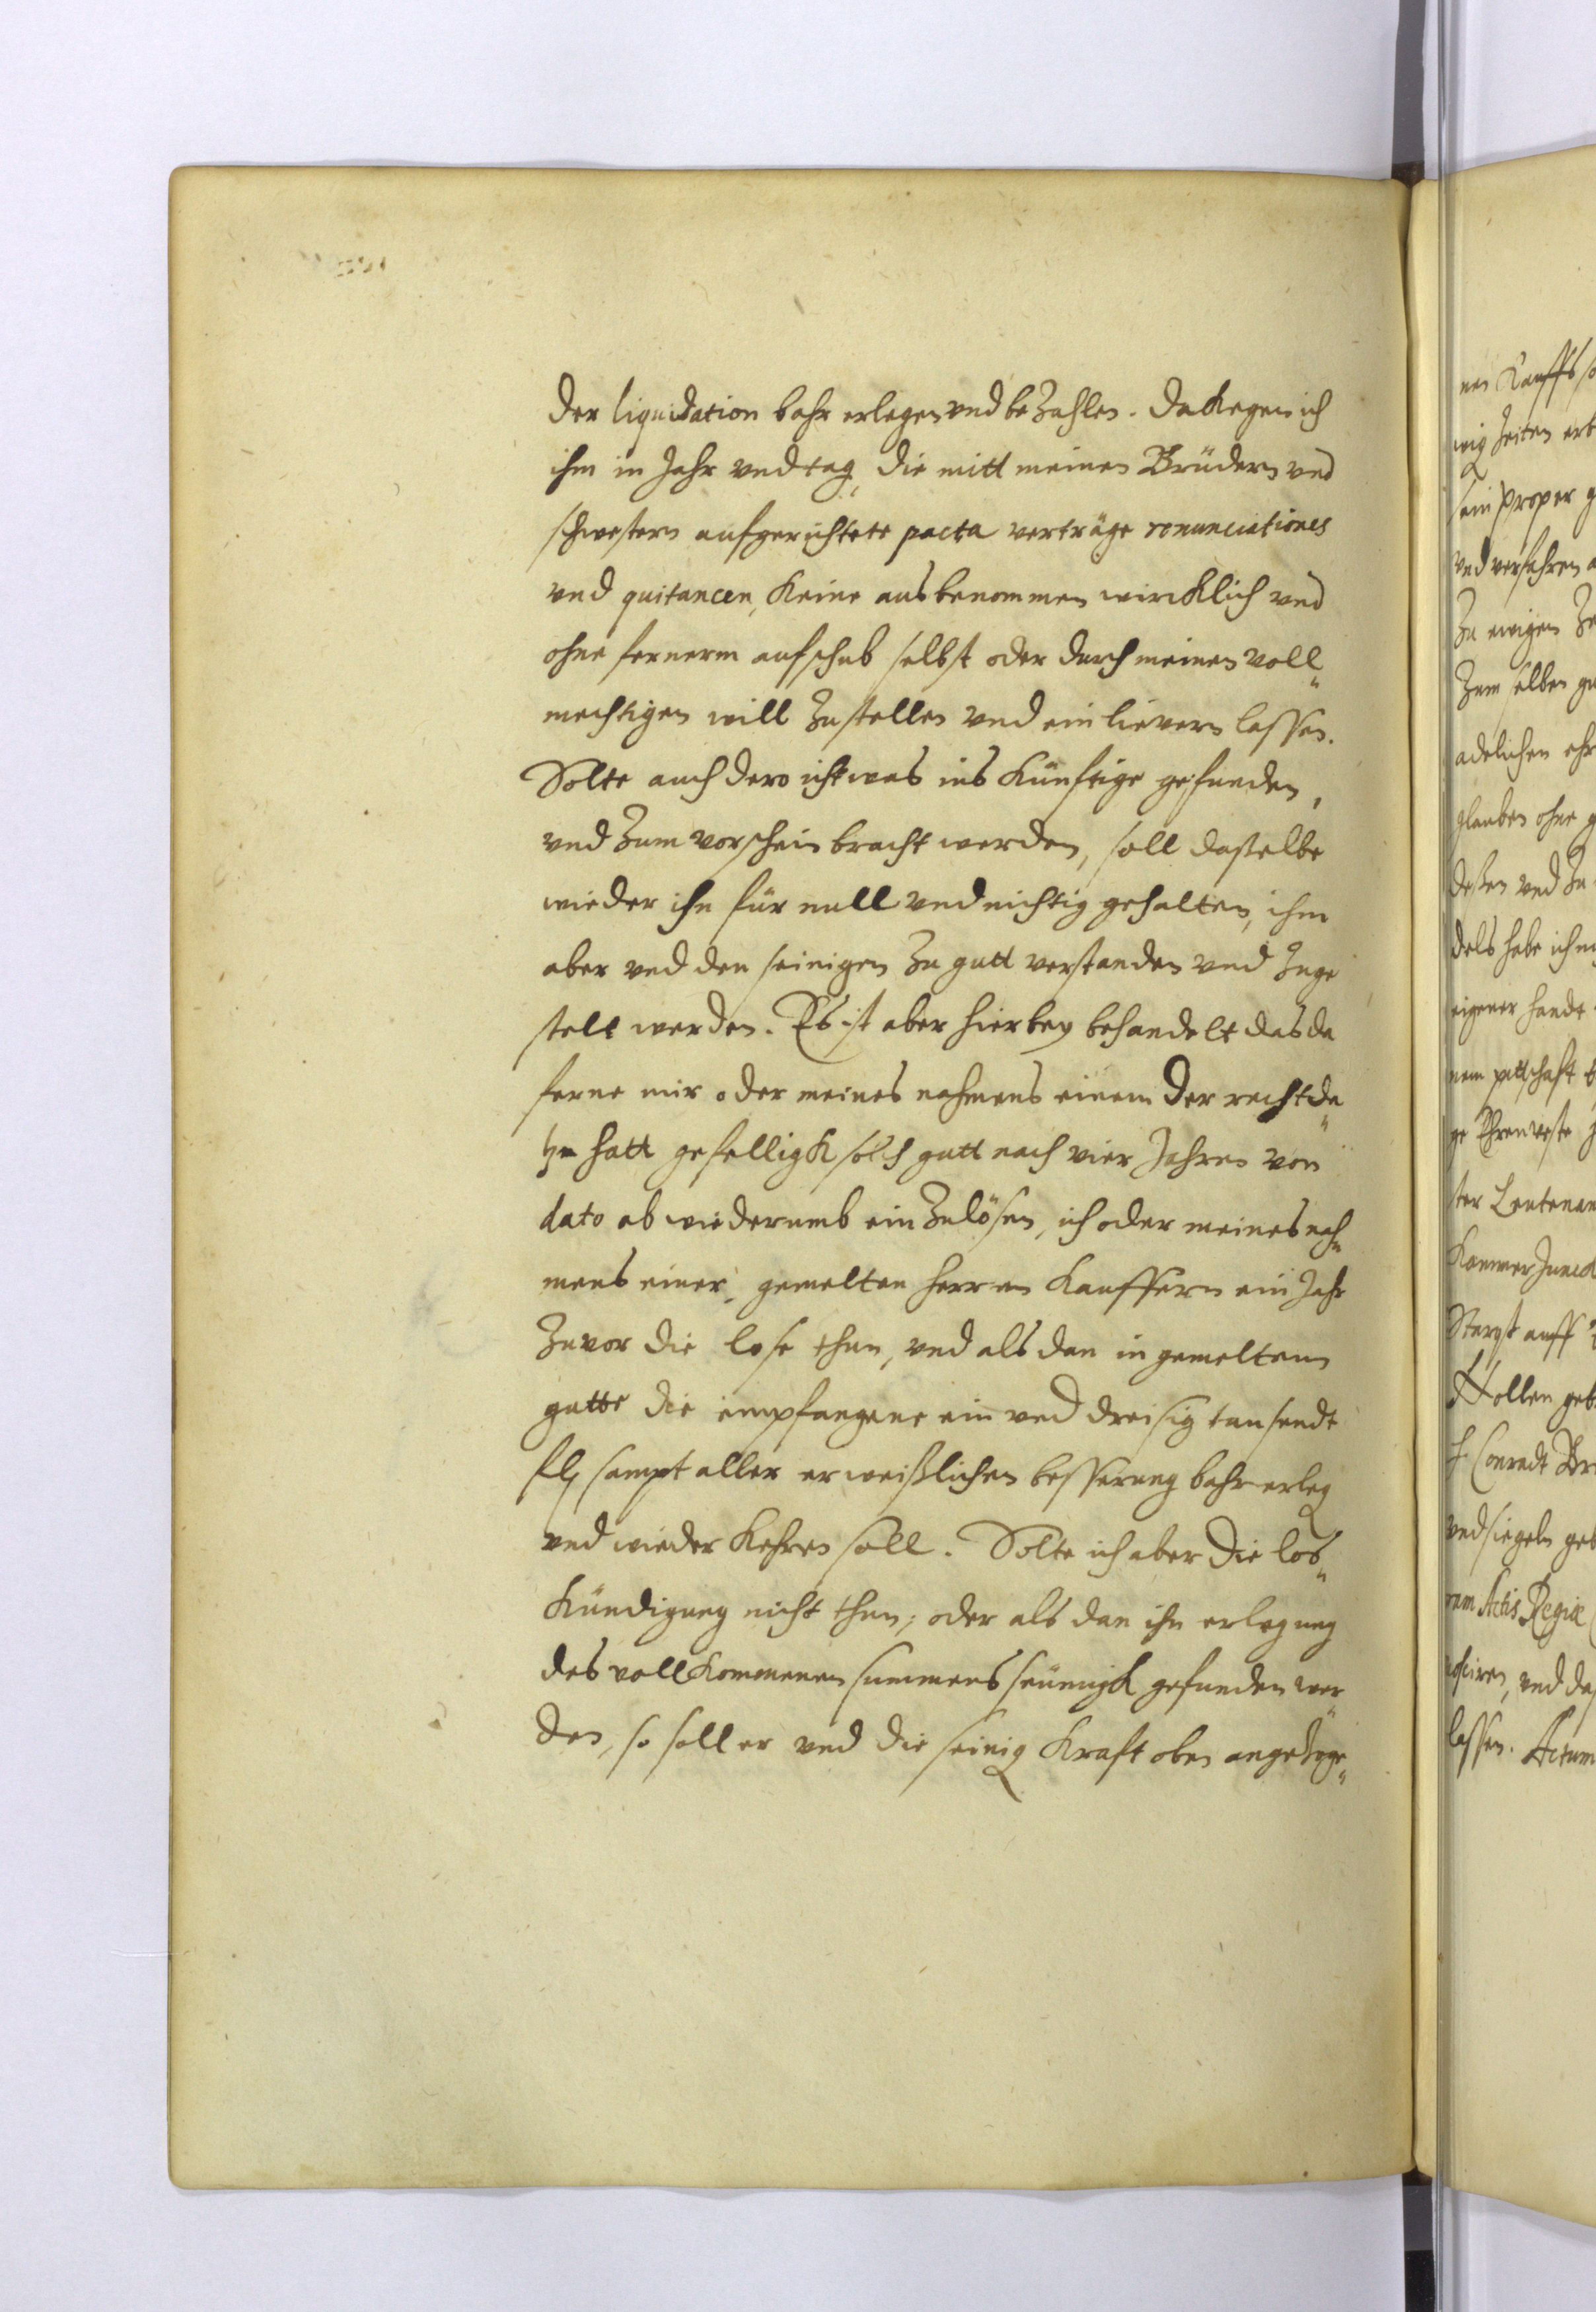 der liquidation bahr erlegen vnd bezahlen. Dakegen ich
ihm in Jahr vnd tag, die mitt meinen Brüdern vnd
schwestern aufgerichtete pacta verträge renunciationes
vnd quitancen, keine ausbenommen wircklich vnd
ohne fernerm aufschub selbst oder durch meinen voll„
mechtigen will zustellen vnd ein lievern lassen.
Solte auch dero ichtwas ins künftige gefunden,
vnd zum vorschein bracht werden, soll daselbe
wieder ihn für null vnd nichtig gehalten, ihm
aber vnd den seinigen zu gutt verstanden vnd zuge
stelt werden. Es ist aber hierbey behandelt das da
ferne mir oder meines nahmens einem der recht da„
zu hatt gefelligk solch gutt nach vier Jahren von
dato ab wiederumb ein zulösen, ich oder meines nah„
mens einer, gemelten herren Kauffern ein Jahr
zuvor die lose thun, vnd als dan in gemeltem
gutte die empfangene ein vnd dreisig tausendt
fl, sampt aller erweißlichen besserung bahr erleg
vnd wieder kehren soll. Solte ich aber die los„
kündigung nicht thun, oder als dan ihn erlegung
des vollkommenen summens seümigk gefunden wer„
den, so soll er vnd die seinig kraft oben angezoge„
nen Kauffs
wig Zeiten
sein proper
vnd
Zu ewigen
Zum selben
adelichen
glauben ohne
deßen vnd Zu
dels habe ich
eigener handt
nem pittschaft
ge Ehrenveste
ster Leutenan
Kammer Junck
auff
Wollen
Conradt
vnd siegeln
rum Actis Regiæ
vnd
lassen. Actum